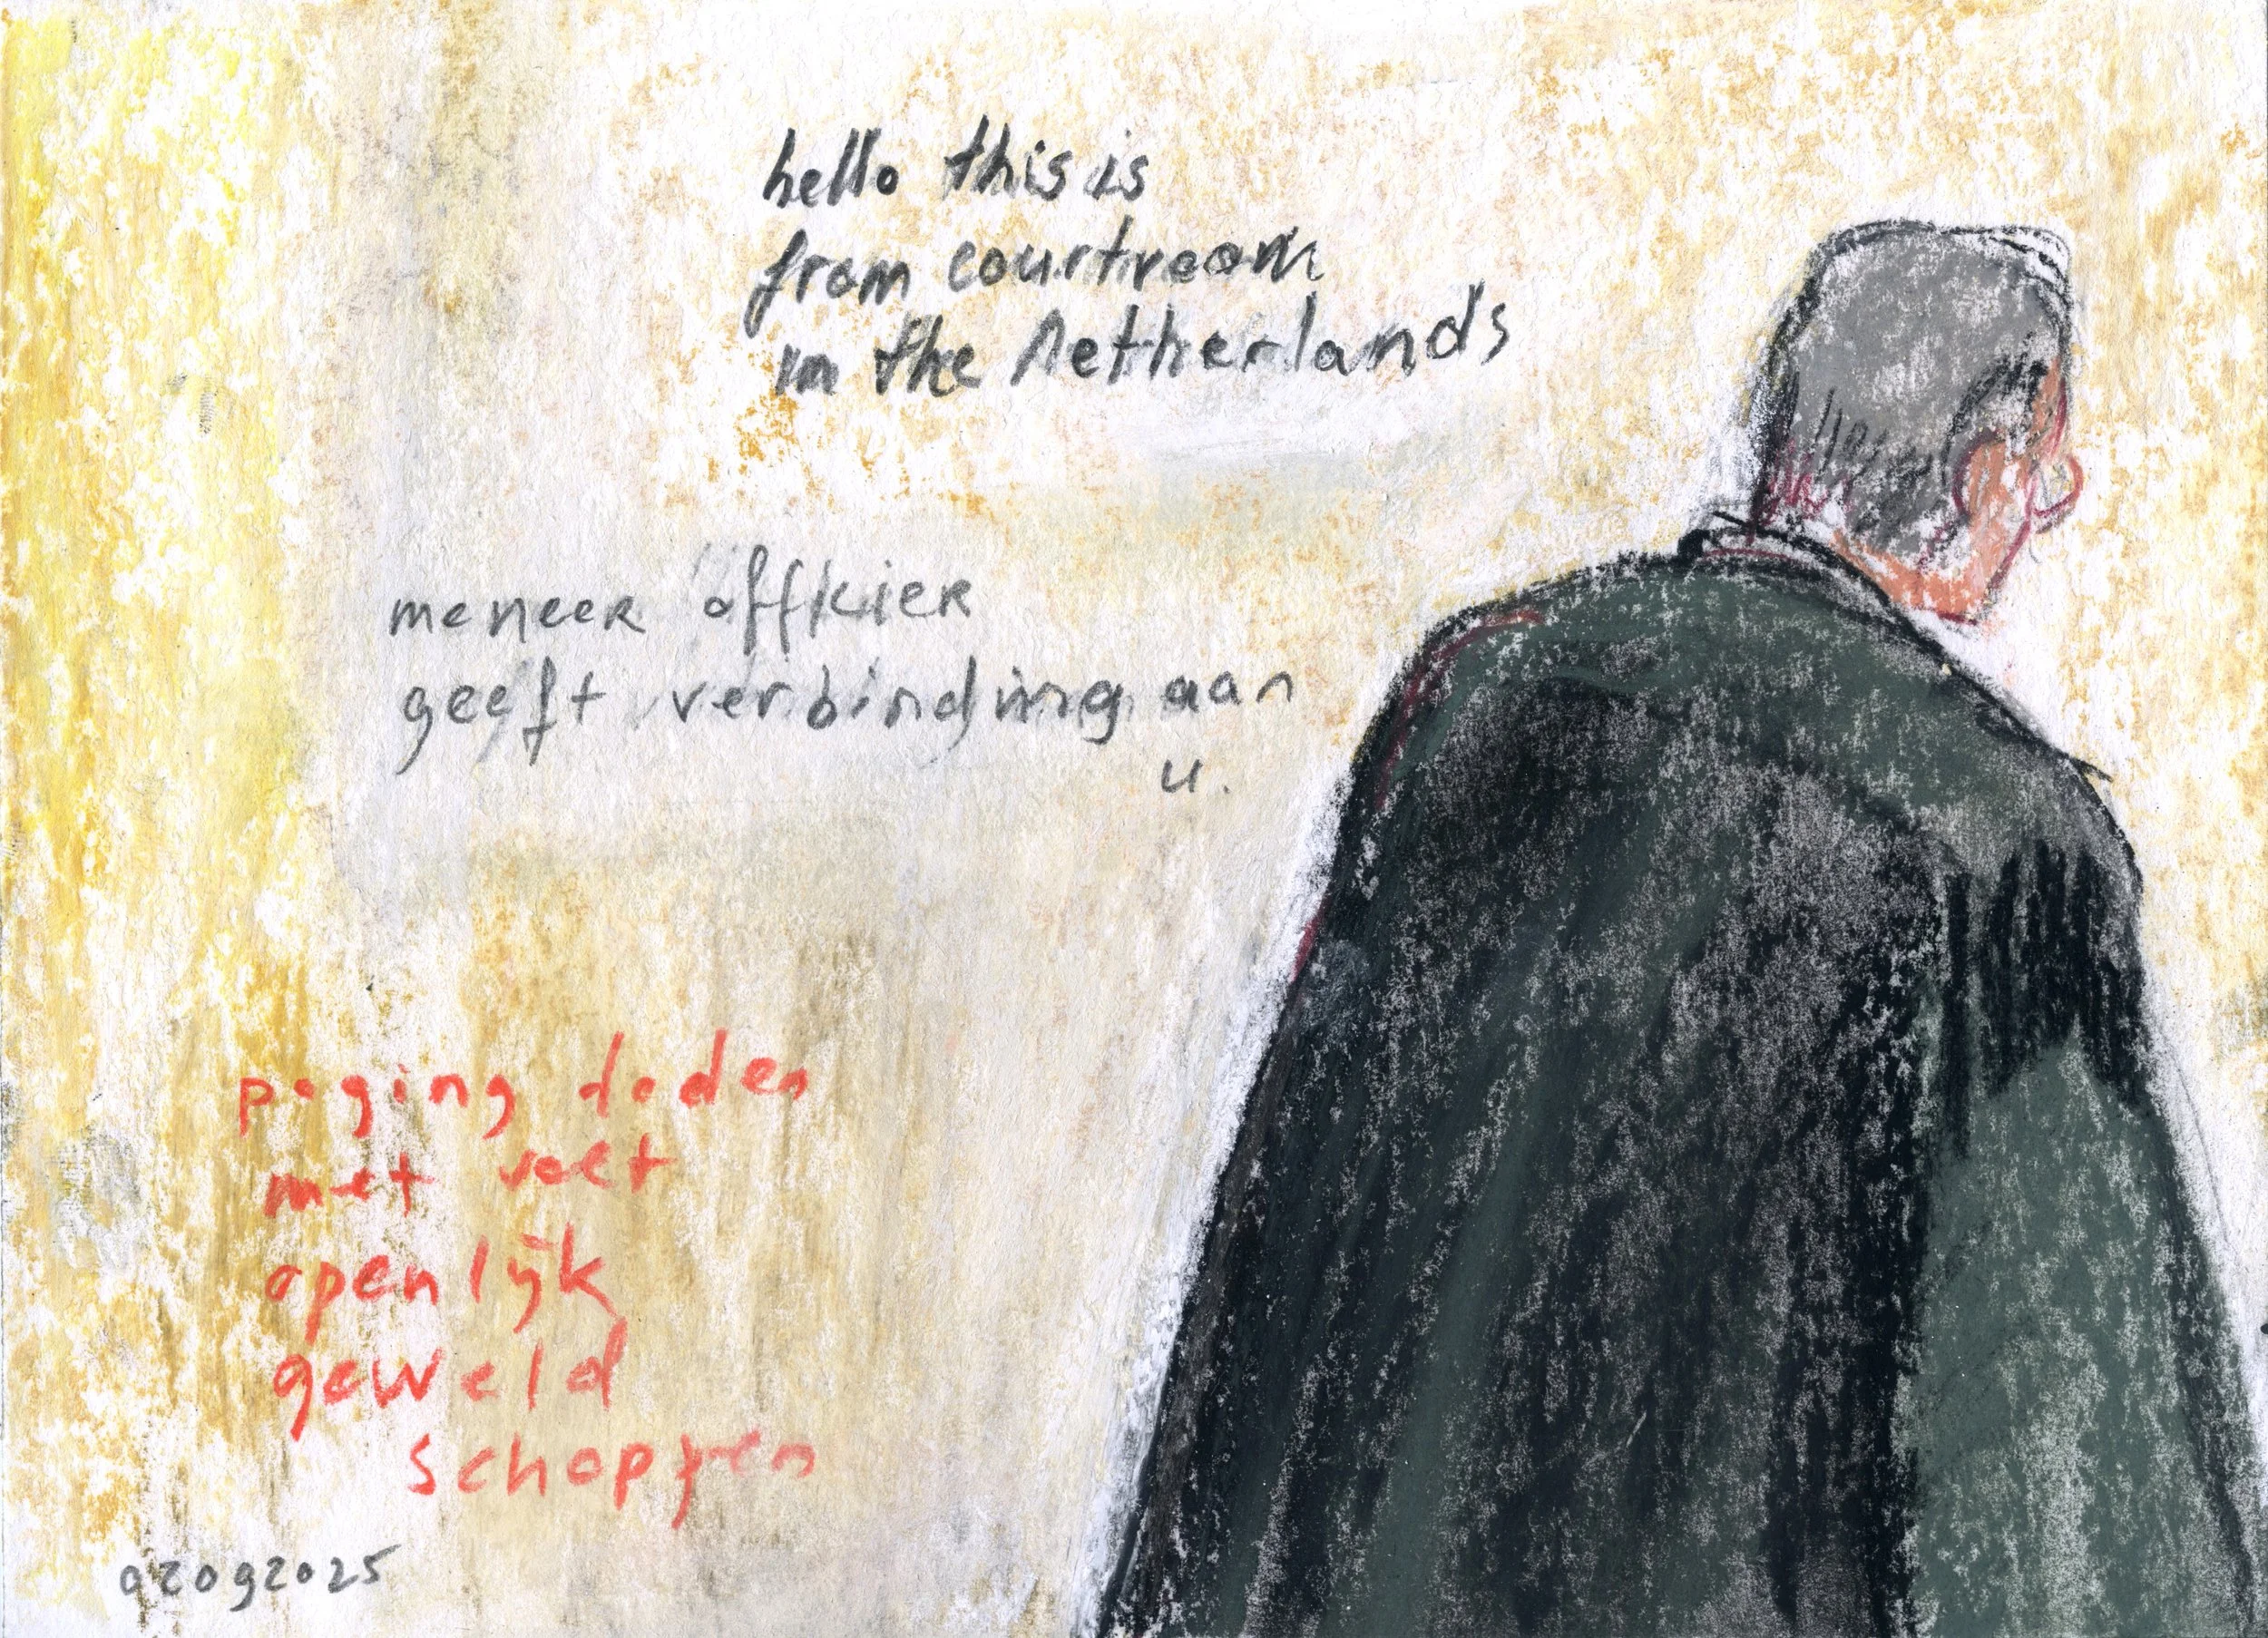 hello this is
from courtroom
in the Netherlands
meneer offkier
geeft verbinding aan
u.
poging doden
met voet
openlijk
geweld
schoppen
02092025